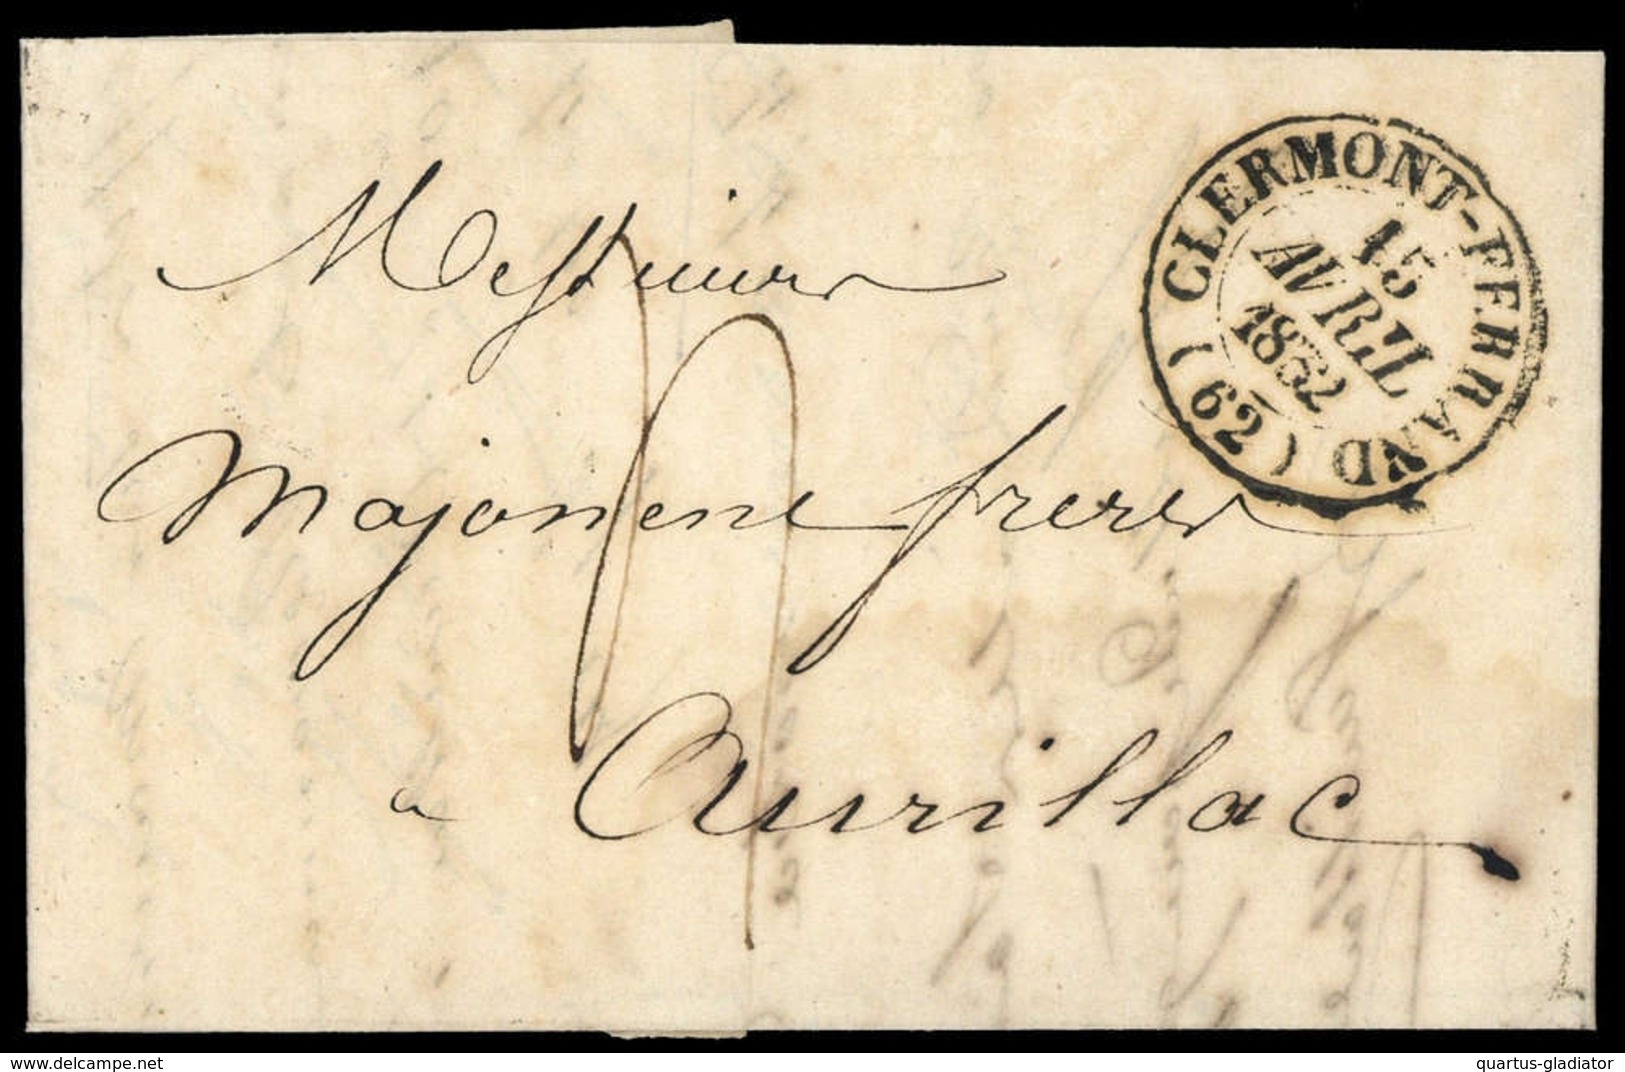 CLERMONT-FERRAND (62)
15
AVRIL
1852
Messieurs
Majonenc freres
a Aurillac
www.delcampe.net
quartus-gladiator